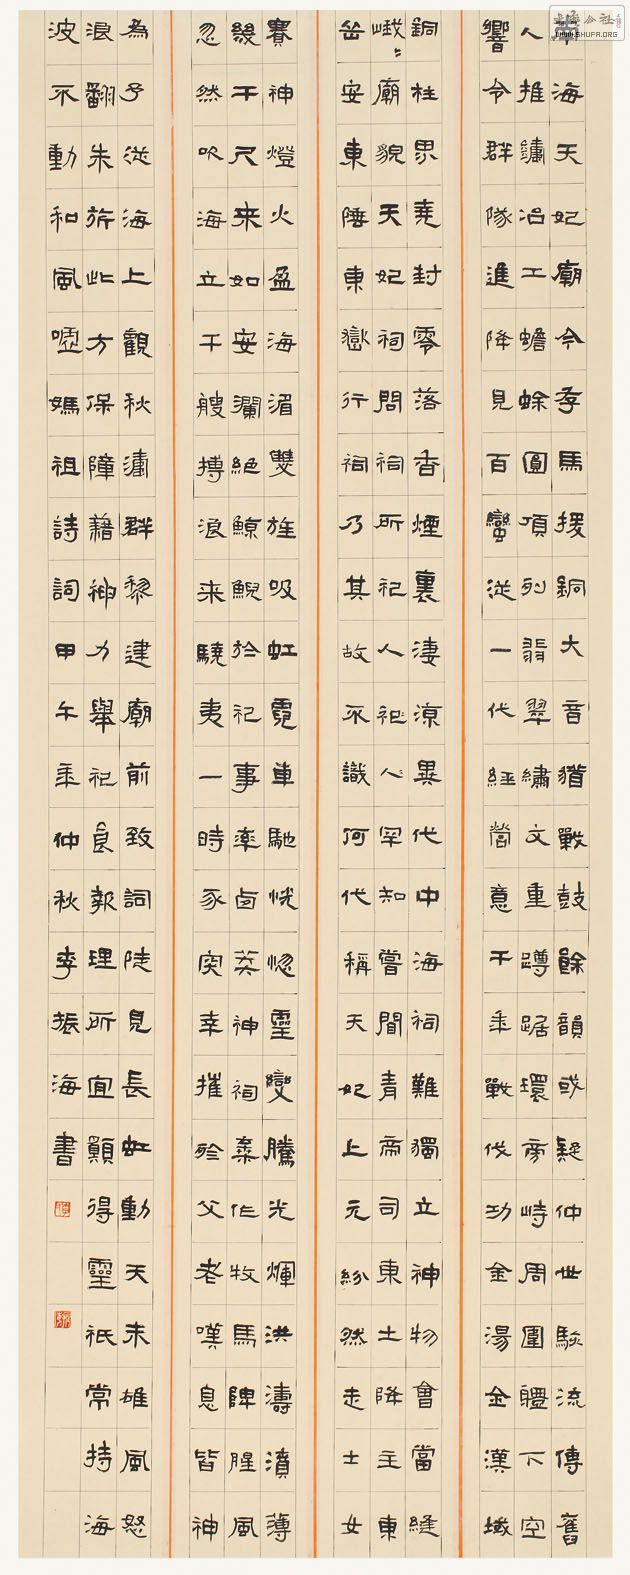 海天妃廟今存馬援銅大音猶戰鼓餘韻或疑仲世駭流傳舊
人推鑄冶工蟾蜍圓項列翡翠繡文重蹲踞環帝峙周圍軆下空
響令群隊進降見百蠻從一代經營意千年戰伐功金湯金漢域
銅柱界堯封零落香煙裏淒涼異代中海祠難獨立神物會當縫
峨〻廟貌天妃祠問祠所祀人祀人罕知嘗聞青帝司東土降主東
岳安東陲東嶽行祠乃其故不識何代稱天妃上元紛然走士女
賽神燈火盈海湄雙旌吸虹霓車馳恍惚靈變騰光輝洪濤濆薄
幾千尺来如安瀾絕鯨鯢於祀事牽鹵英神祠棄作牧馬陴腥風
忽然吹海立千艘搏浪来驍夷一時豕突幸摧殄父老嘆息皆神
為予從海上觀秋濤群黎建廟前致詞陡見長虹動天末雄風怒
浪翻朱旂此方保障藉神力舉祀良報理所宜顧得靈祇常持海
波不動和風噓媽祖詩詞甲午年仲秋李振海書
WWW.SHUFA.ORG